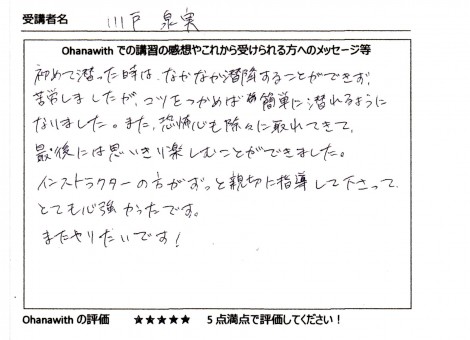 受講者名 川戸 泉実
Ohanawith での講習の感想やこれから受けられる方へのメッセージ等
初めて潜った時は、なかなか潜降することができず、
苦労しましたが、コツをつかめば簡単に潜れるように
なりました。また、恐怖心も除々に取れてきて、
最後には思いきり楽しむことができました。
インストラクターの方がずっと親切に指導して下さって、
とても心強かったです。
またやりたいです!
Ohanawith の評価 ★★★★★ 5点満点で評価してください!